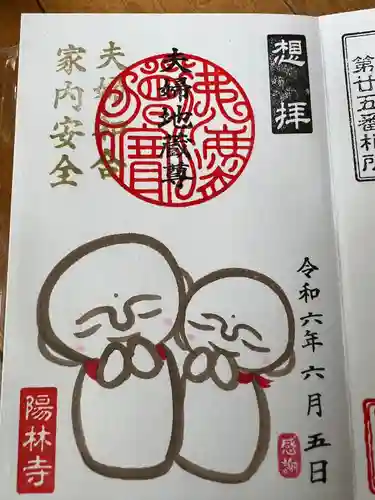 第廿五番札所
想拝
夫婦地蔵尊
夫婦和合
家内安全
佛法僧寶
令和六年六月五日
感謝
陽林寺